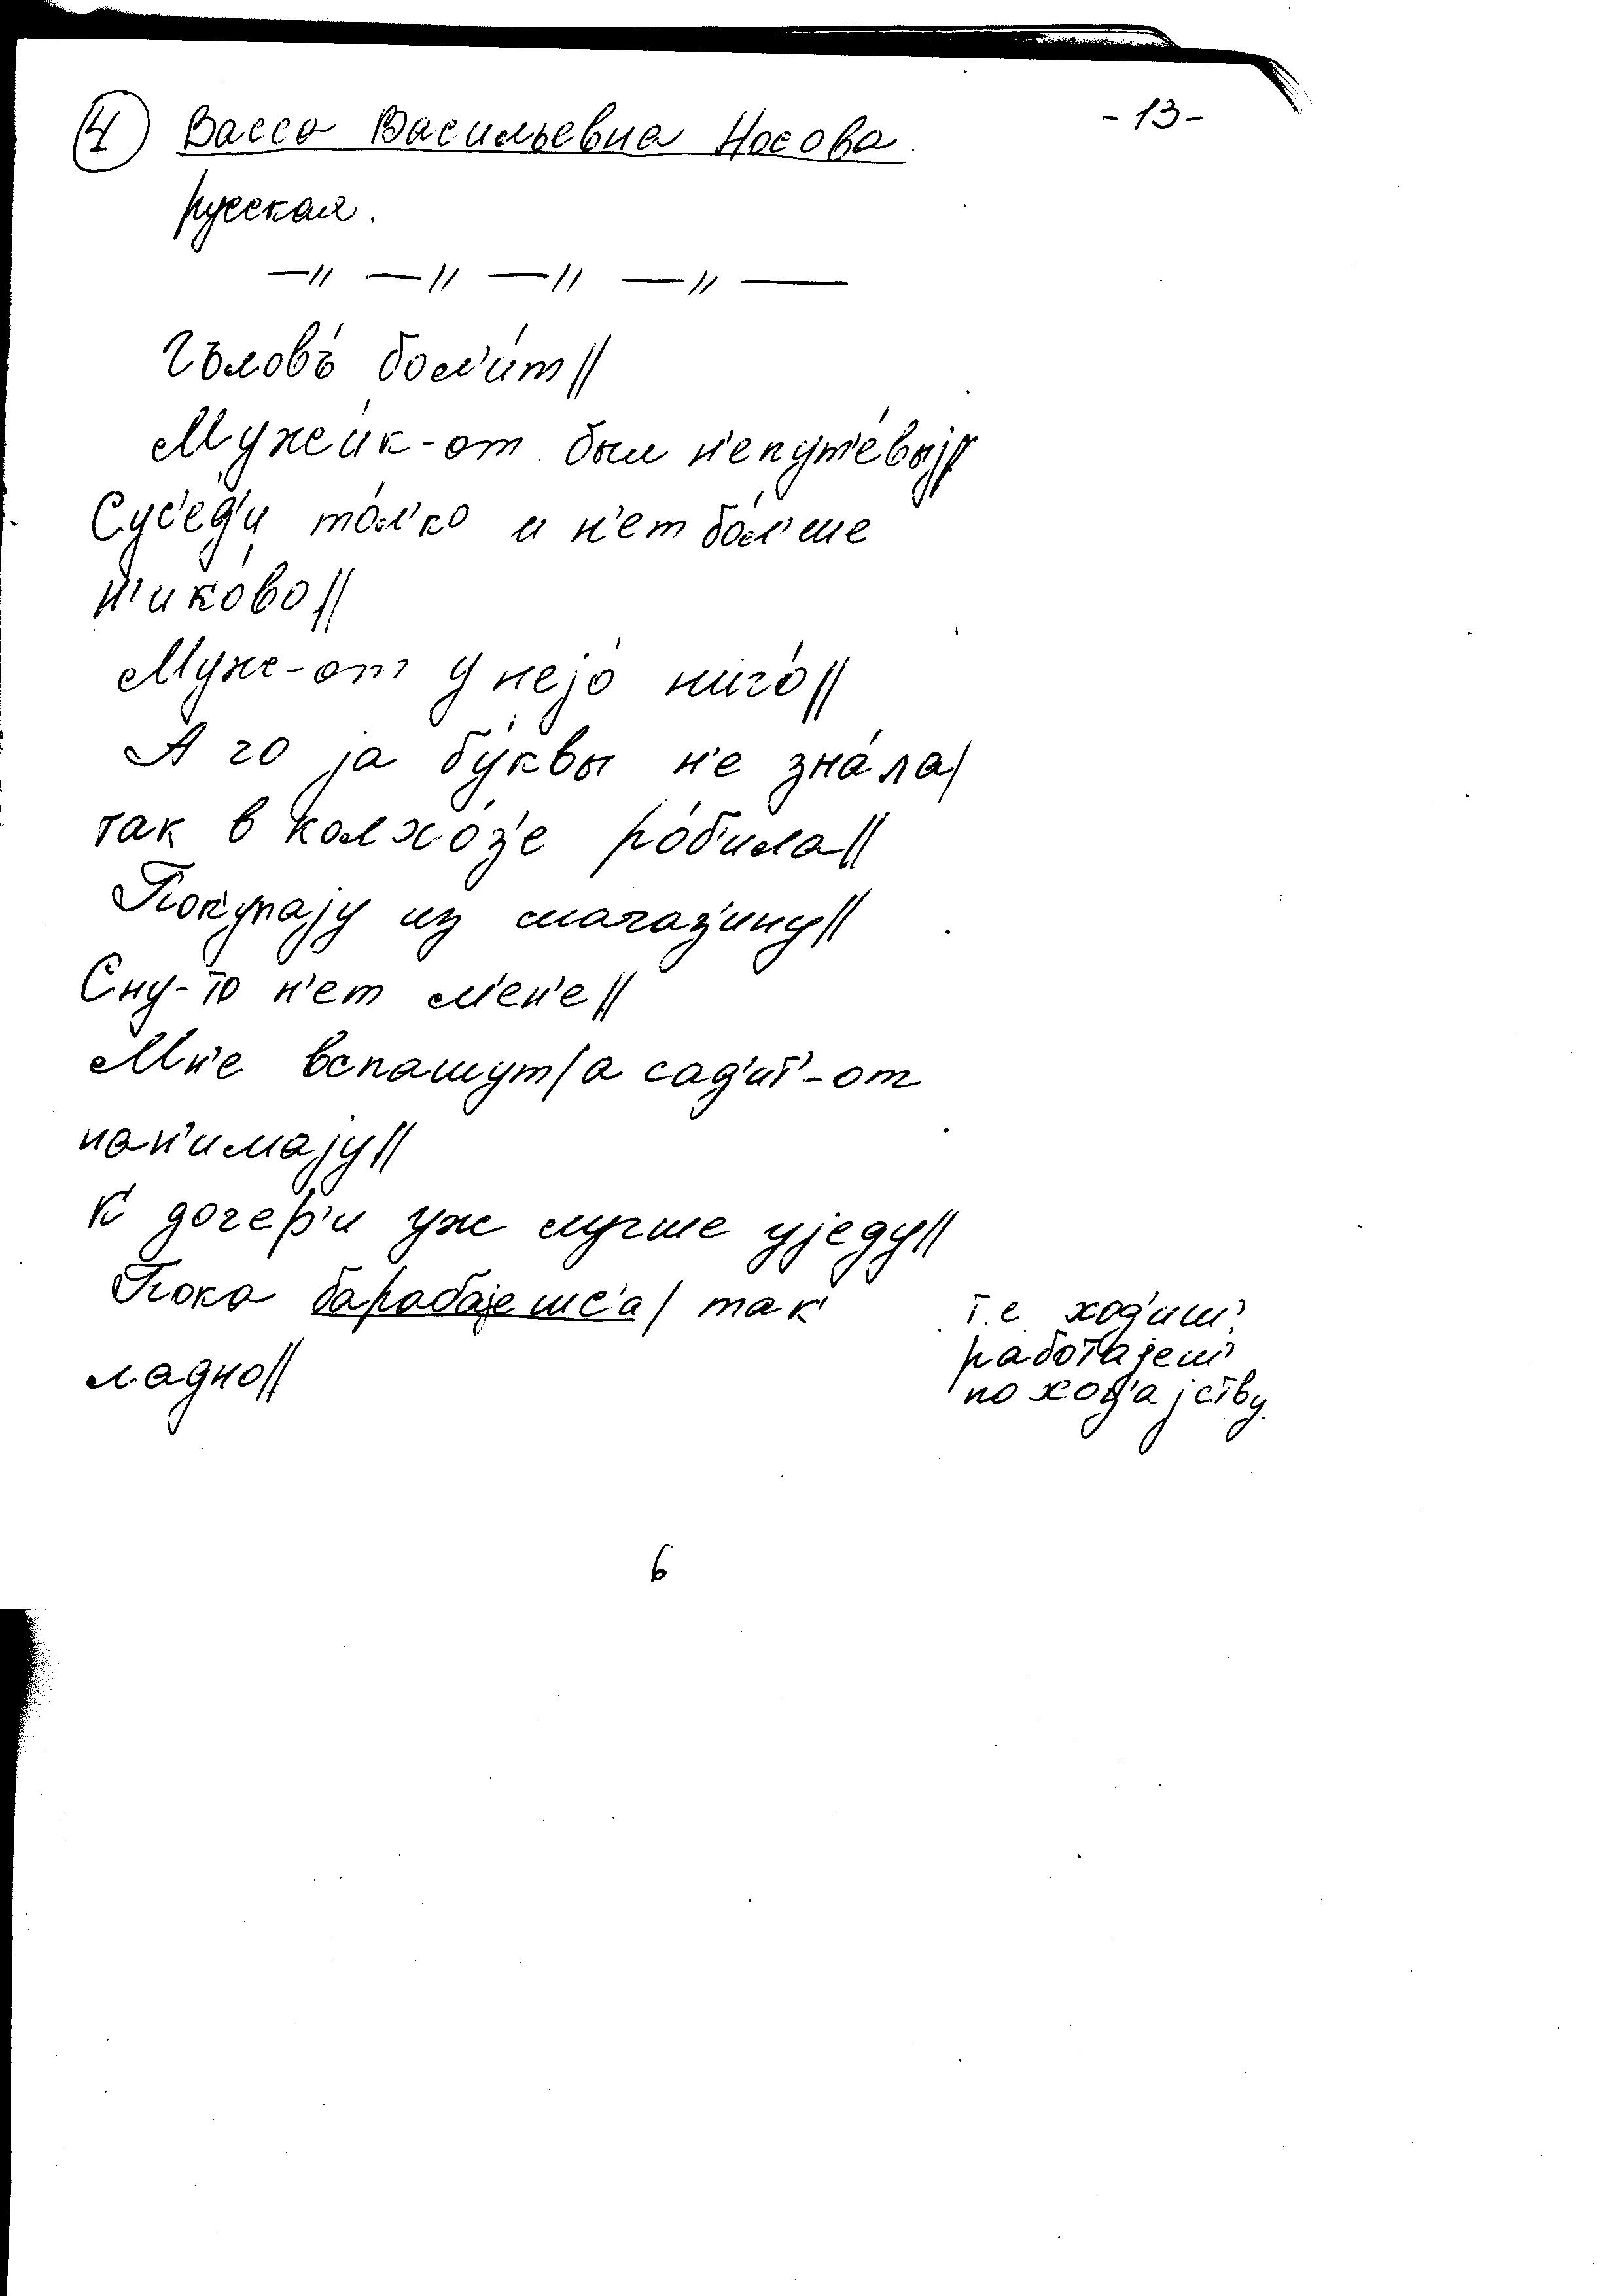 4 Васса Васильевна Носова.
- 13 -
русская.
—〃 —〃 —〃 —〃 —
Гъловъ́ бол'и́т||
Мужи́к-от был н'епут'е́выj||
Сус'е́д'и то́л'ко и н'ет бо́л'ше
н'ико́во||
Муж-от у нејо́ ничо́||
А чо ја бу́квы н'е зна́ла|
так в колхо́з'е ро́б'ила||
Покупају из магаз'ину||
Сну-то н'ет м'ен'е||
Мн'е вспашут|а сад'ит'-от
нан'имају||
К дочер'и уж лучше уједу||
Пока барабајешс'а| так
ладно||
т.е. ход'иш',
работајеш'
по хоз'ајству.
6